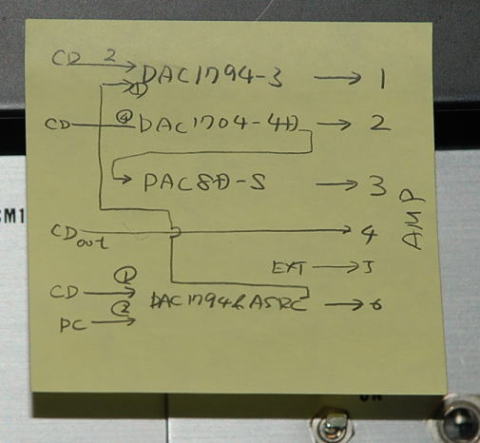 CD 2 → DAC1794-3 → 1
①
CD ④ DAC1704-4D → 2
→ DAC8D-S → 3
CDout → 4
EXT → 5
CD ① → DAC1794 & ASRC → 6
PC ② →
AMP
CM1